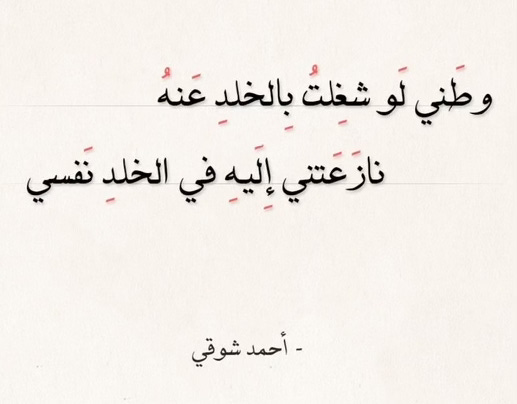 وطَني لَو شغِلتُ بِالخلدِ عَنهُ
نازَعَتني إِلَيهِ في الخلدِ نَفسي
- أحمد شوقي